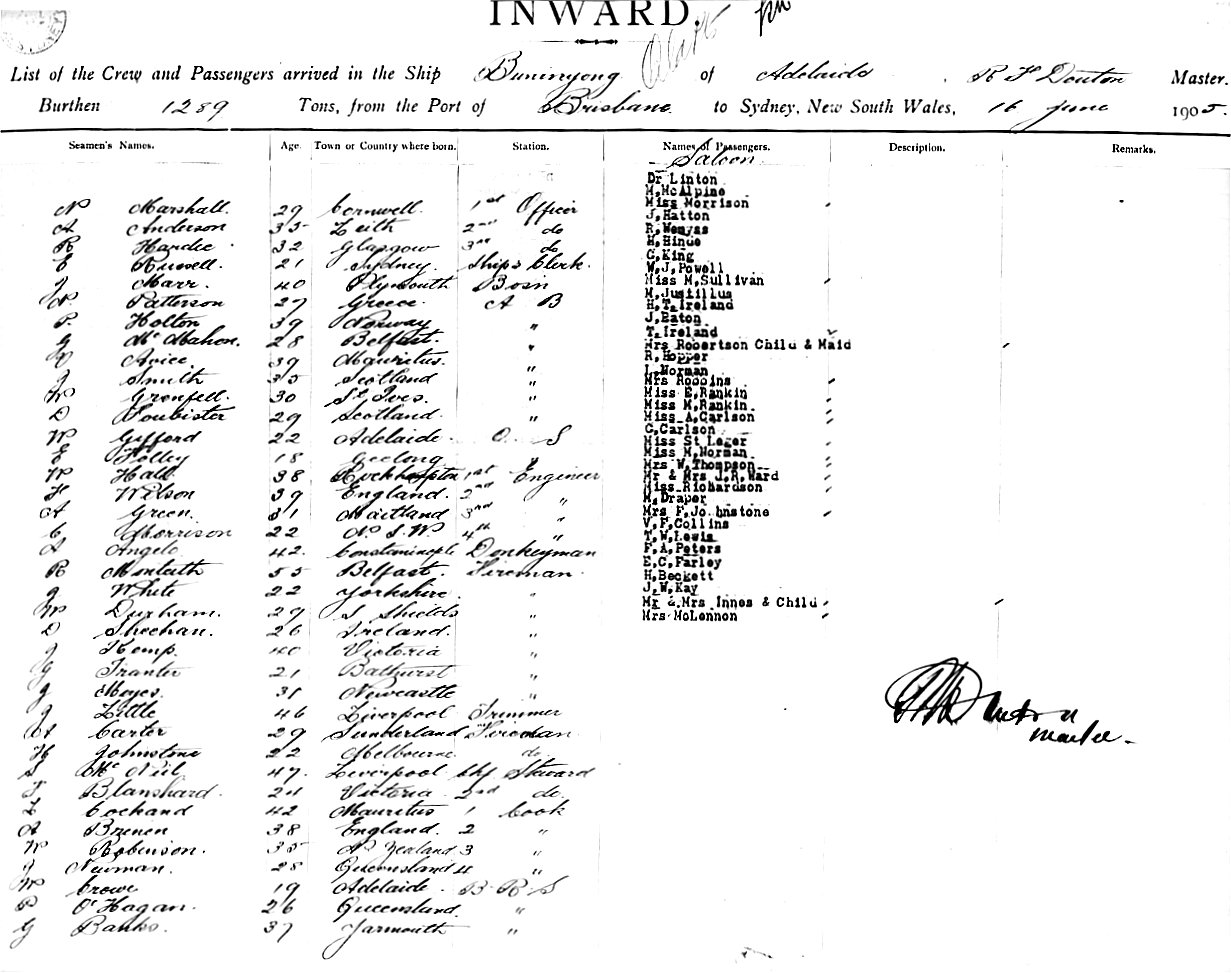 INWARD.
List of the Crew and Passengers arrived in the Ship Buninyong of Adelaide. R F Douton Master.
Burthen 1289 Tons, from the Port of Brisbane to Sydney, New South Wales, 16 June 1905.
Seamen's Names. Age. Town or Country where born. Station. Names of Passengers. Description. Remarks.
Saloon.
N Marshall. 29 Cornwell. 1st Officer
A Anderson 35 Leith 2nd do
R Hardie 32 Glasgow 3rd do
E Russell. 21 Sydney. Ship's Clerk.
J Marr. 40 Plymouth Bosn
N. Patterson 27 Greece. A B
P. Holton 39 Norway "
G McMahon. 28 Belfast. "
Avice. 39 Mauritus. "
J Smith 35 Scotland "
W Grenfell. 30 St Ives. "
D Soubister 29 Scotland. "
W Gifford 22 Adelaide. O. S
E Holley 18 Geelong "
W Hall 38 Rockhampton 1st Engineer
F Wilson 39 England. 2nd "
A Green. 31 Maitland 3rd "
C Morrison 22 N. S. W. 4th "
A Angelo 42. Constaninople Donkeyman
R Monteith 55 Belfast. Fireman.
J White 22 Yorkshire. "
W Durham. 29 S Shields "
D Sheehan. 26 Ireland. "
J Kemp. 40 Victoria "
G Tranter 21 Bathurst "
J Moyes. 31 Newcastle "
J Little 46 Liverpool Trimmer
A Carter 29 Sunderland Fireman
H Johnstone 22 Melbourne. do.
S McNeil 47. Liverpool Chf Steward
F Blanshard. 24 Victoria 2nd do.
L Cockand 42 Mauritus 1 Cook
A Brenen 38 England. 2 "
W Robinson. 35 N Zealand 3 "
J Newman. 28 Queensland 4 "
W Crowe 19 Adelaide. B R S
P O'Hagan. 26 Queensland. "
G Banks. 37 Yarmouth "
Dr Linton
M.McAlpine
Miss Morrison
J.Hatton
R.Wemyss
H.Hinde
G.King
W.J.Powell
Miss M.Sullivan
M.Justillus
H.T.Ireland
J.Eaton
T.Ireland
Mrs Robertson Child & Maid
R.Hopper
L.Norman
Mrs Robbins
Miss E.Rankin
Miss M.Rankin
Miss A.Carlson
C.Carlson
Miss St Leger
Miss M.Norman
Mrs W.Thompson
Mr & Mrs J.R.Ward
Miss Richardson
M.Draper
Mrs F.Johnstone
V.F.Collins
T.W.Lewis
F.A.Peters
E.C.Farley
H.Beckett
J.W.Kay
Mr & Mrs Innes & Child
Mrs McLennon
Master